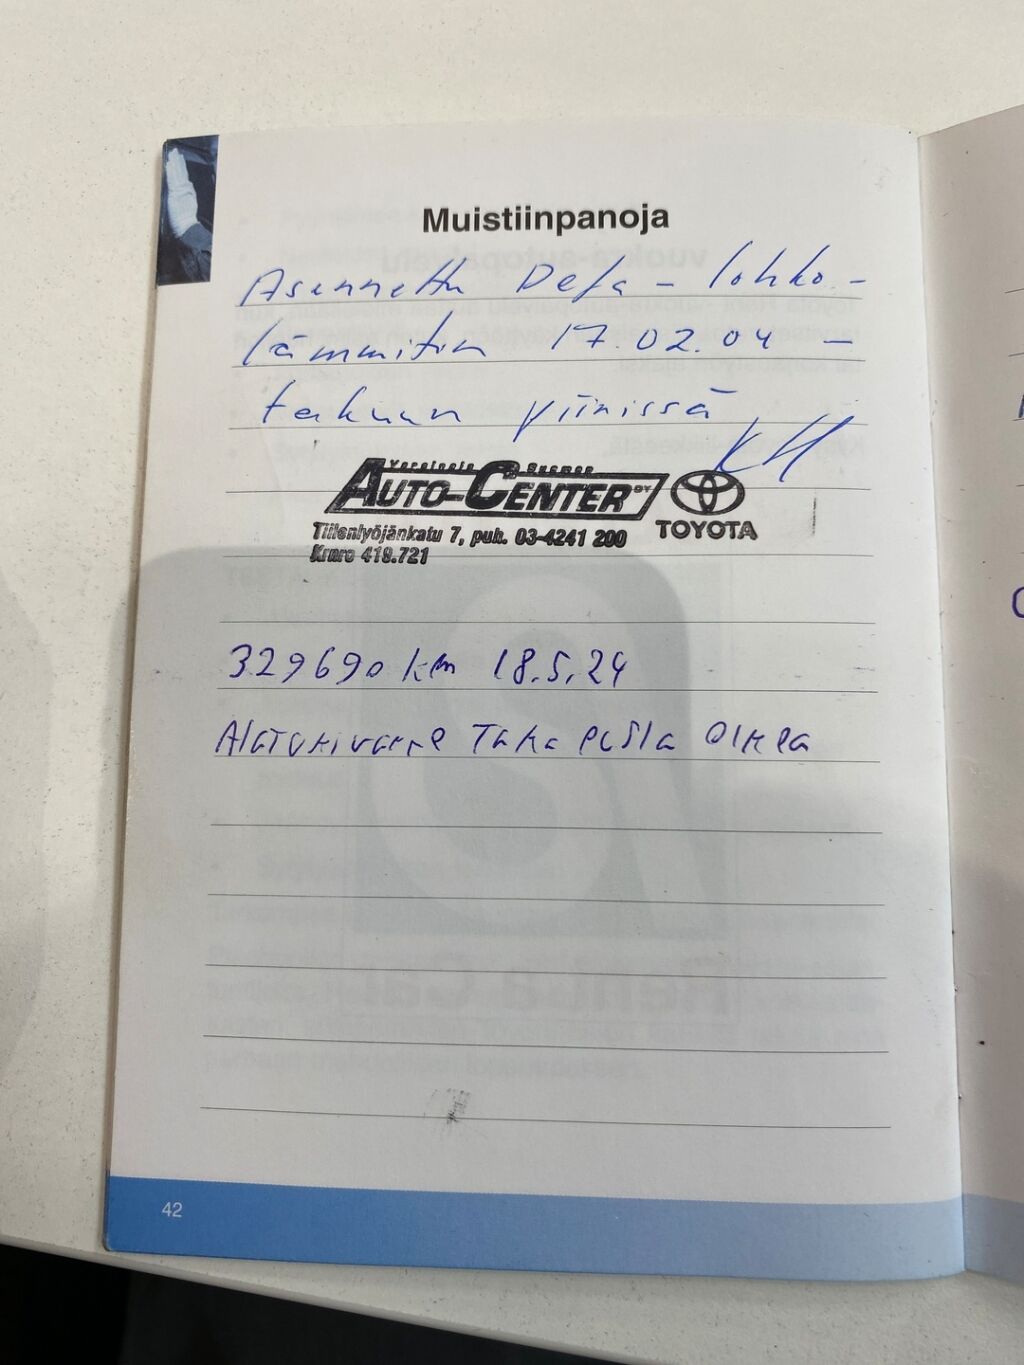 Muistiinpanoja
Asennettu Defa - lohko -
lämmitin 17.02.04 -
takuun piirissä
KH
AUTO-CENTER OY TOYOTA
Tiilenlyöjänkatu 7, puh. 03-4241 200
Krnro 419.721
329690 km 18.5.24
Alatukivarre Taka pusla Oikea
42